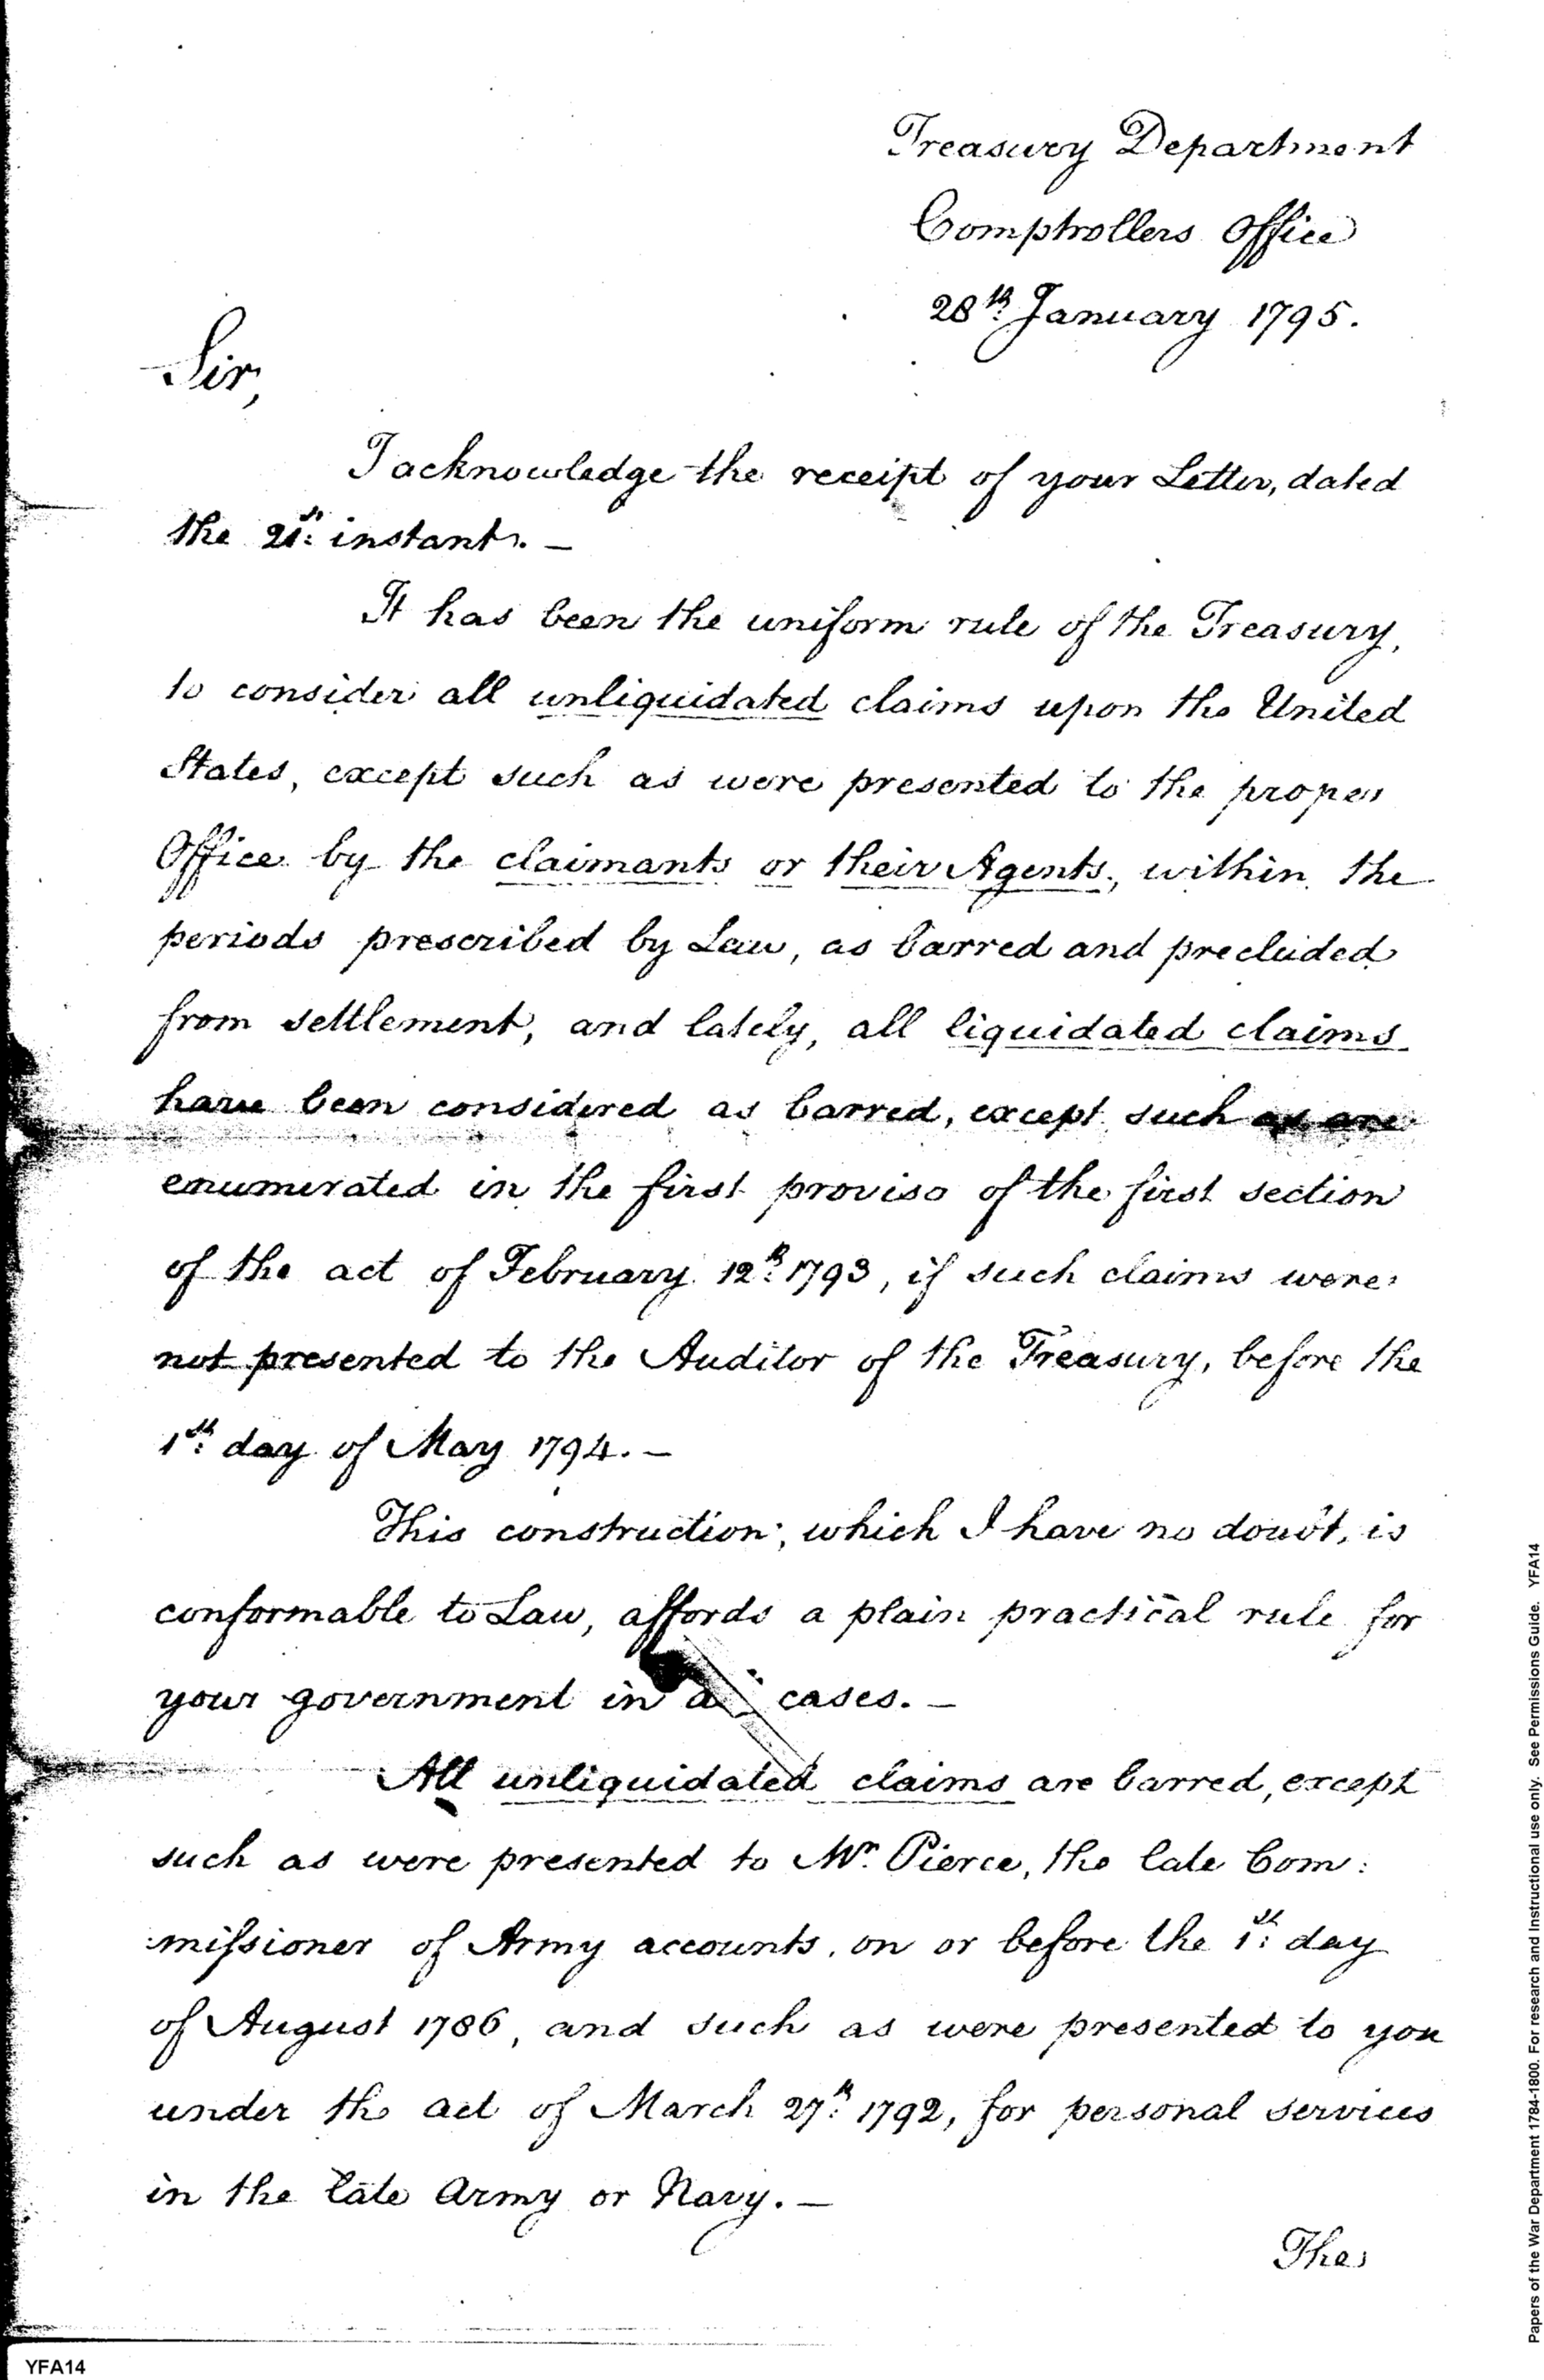 Treasury Department
Comptrollers Office
28th January 1795.
Sir,
I acknowledge the receipt of your Letter, dated
the 21st instant. —
It has been the uniform rule of the Treasury,
to consider all unliquidated claims upon the United
States, except such as were presented to the proper
Office by the claimants or their Agents, within the
periods prescribed by Law, as barred and precluded
from settlement, and lately, all liquidated claims
have been considered as barred, except such as are
enumerated in the first proviso of the first section
of the act of February 12th 1793, if such claims were
not presented to the Auditor of the Treasury, before the
1st day of May 1794. —
This construction, which I have no doubt, is
conformable to Law, affords a plain practical rule for
your government in cases. —
All unliquidated claims are barred, except
such as were presented to Mr. Pierce, the late Com:
:missioner of Army accounts, on or before the 1st day
of August 1786, and such as were presented to you
under the act of March 27th 1792, for personal services
in the late Army or Navy. —
The
Papers of the War Department 1784-1800. For research and Instructional use only. See Permissions Guide. YFA14
YFA14